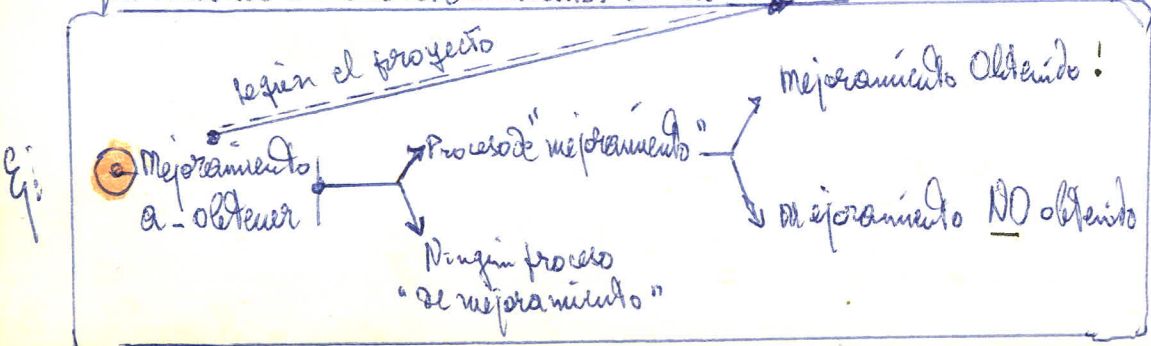 según el proyecto
Ej:
Mejoramiento
a-obtener
Proceso de "mejoramiento"
Ningún proceso
"de mejoramiento"
Mejoramiento Obtenido!
Mejoramiento NO obtenido